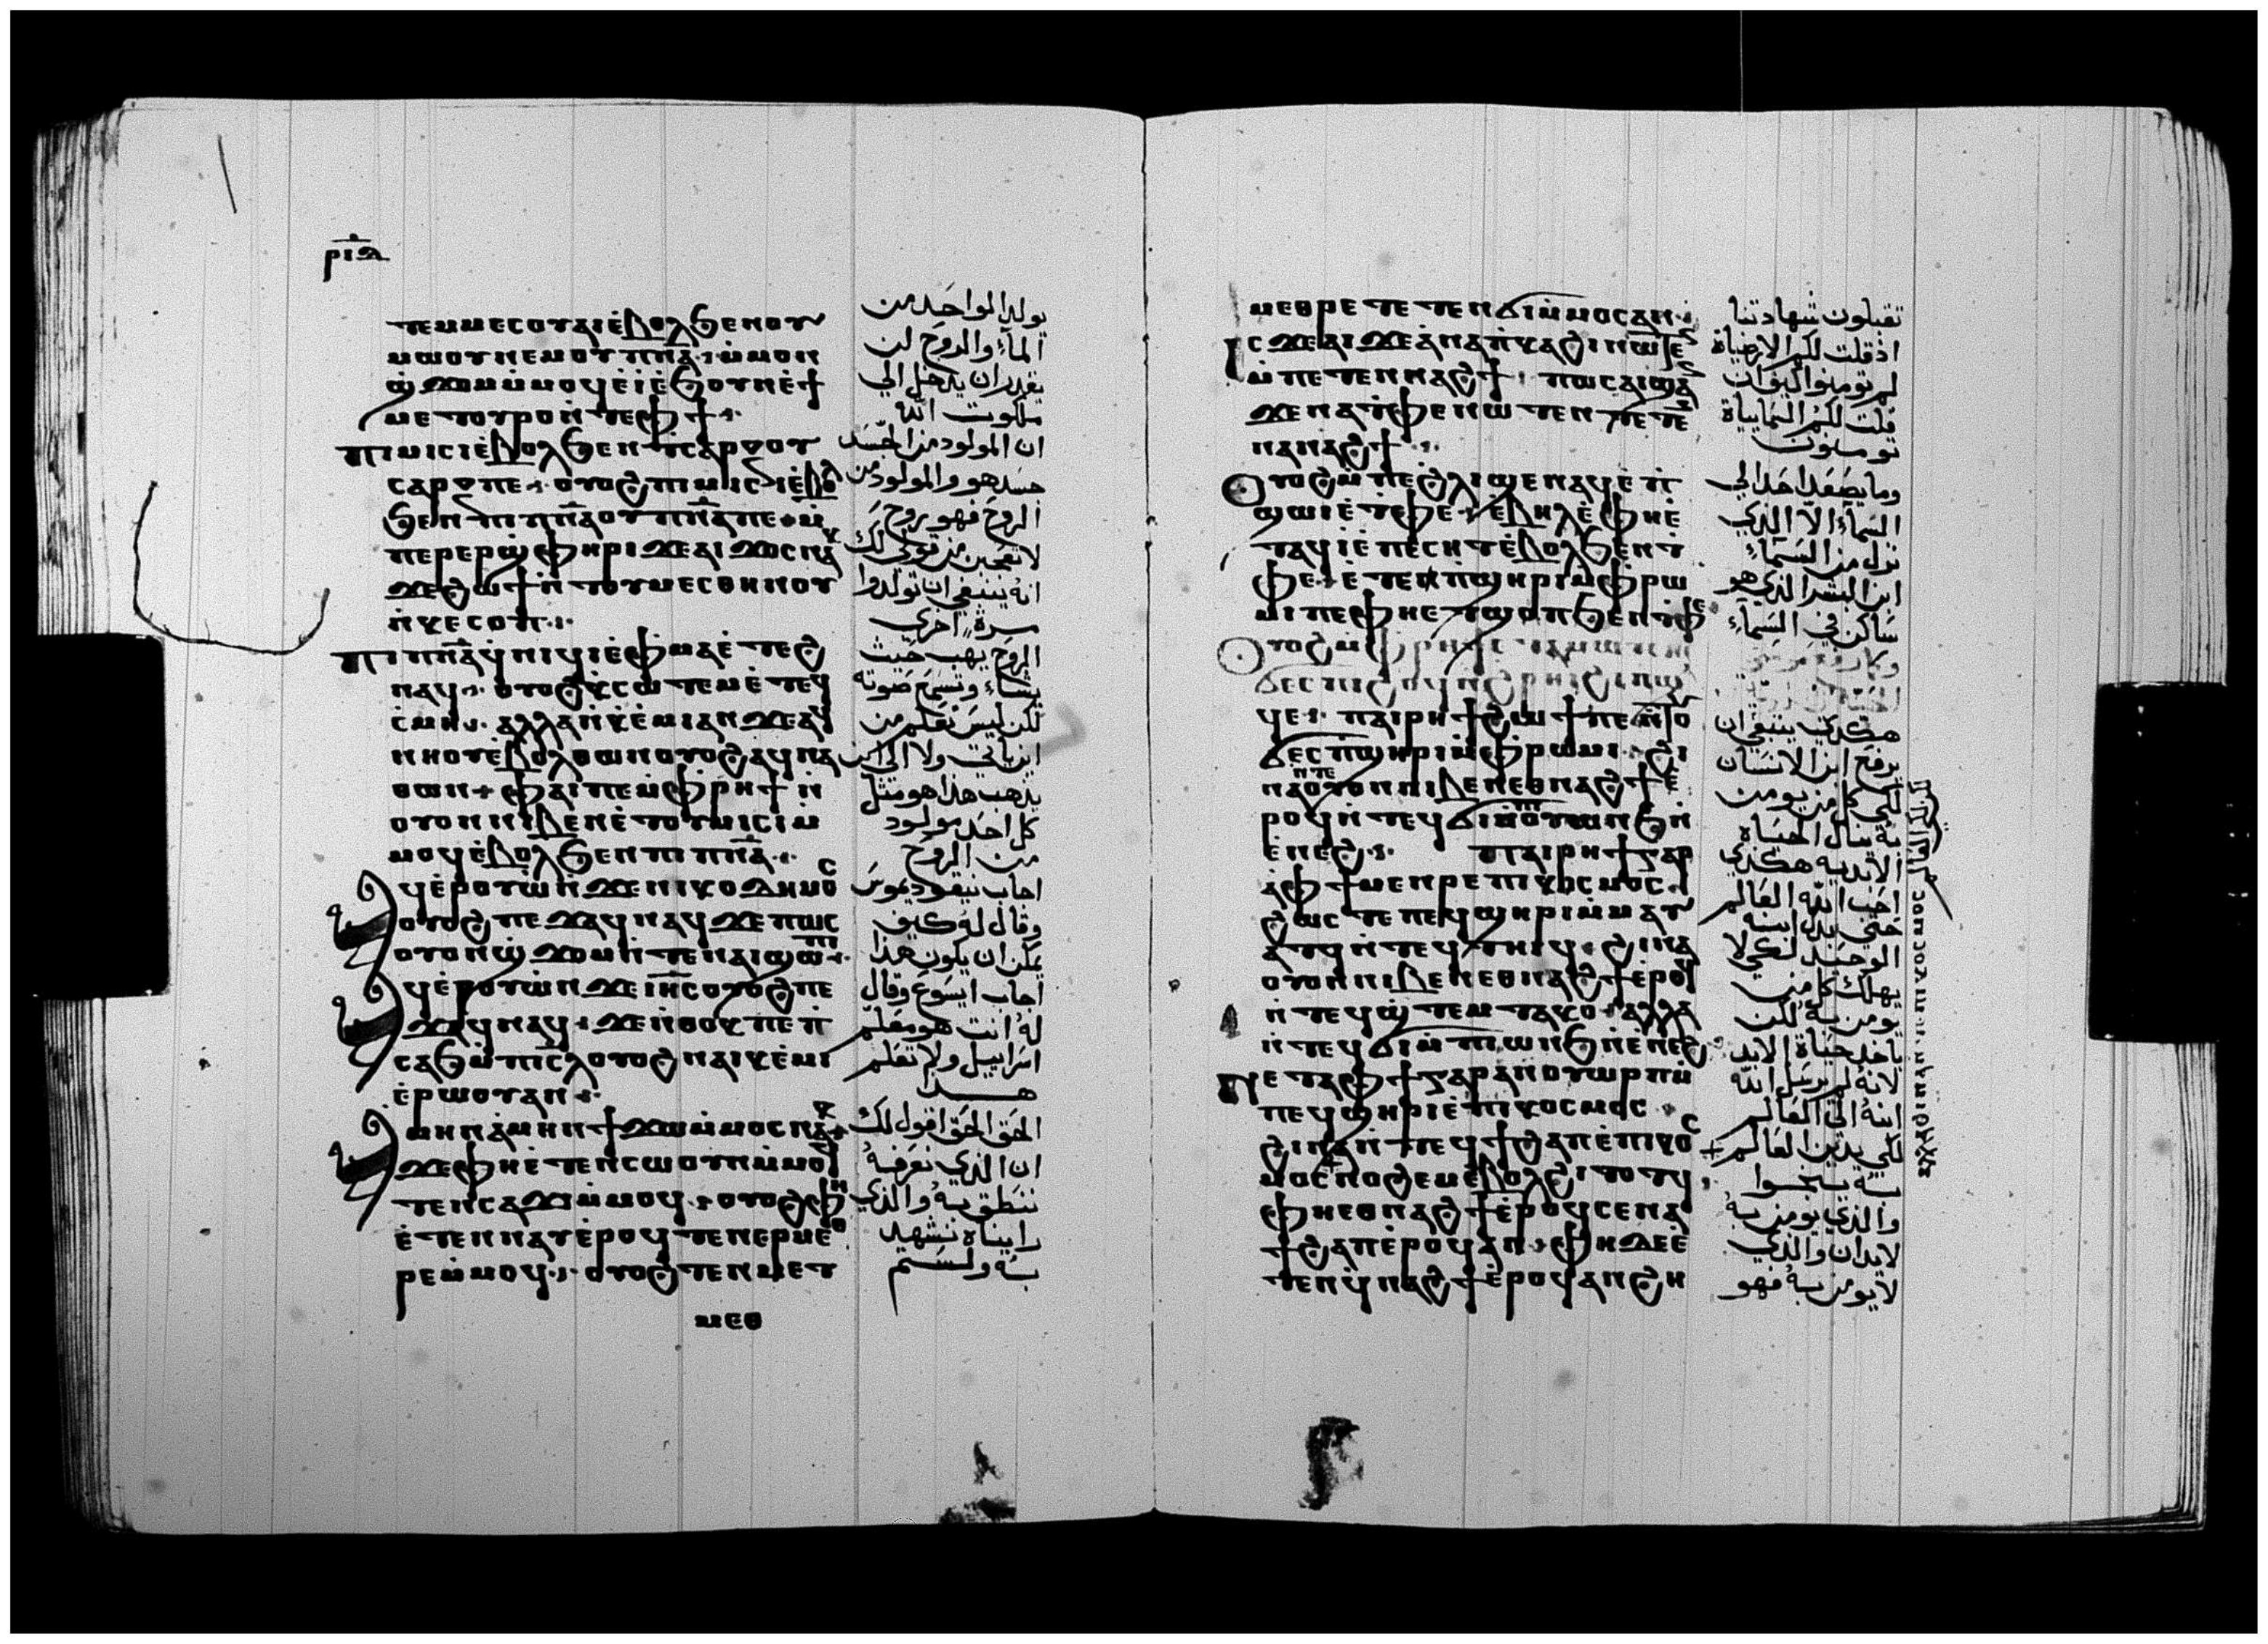 ⲣⲓⲇ
ⲧⲉⲙⲙⲉⲥⲟⲩⲁⲓⲉ̀ⲃⲟⲗϧⲉⲛⲟⲩ
ⲙⲱⲟⲩⲛⲉⲙⲟⲩⲡ̅ⲛ̅ⲁ̅ ⲙ̀ⲙⲟⲛ
ϣ̀ϫⲟⲙⲙ̀ⲙⲟϥⲉ̀ⲓ̀ⲉ̀ϧⲟⲩⲛⲉ̀ϯ
ⲙⲉⲧⲟⲩⲣⲟⲛ̀ⲧⲉⲫϯ
ⲡⲓⲙⲓⲥⲓⲉ̀ⲃⲟⲗϧⲉⲛⲧⲥⲁⲣⲝⲟⲩ
ⲥⲁⲣⲝⲡⲉ ⲟⲩⲟϩⲡⲓⲙⲓⲥⲓⲉ̀ⲃⲟⲗ
ϧⲉⲛⲡⲓⲡ̅ⲛ̅ⲁ̅ⲟⲩⲡ̅ⲛ̅ⲁ̅ⲡⲉ ⲙ̀
ⲡⲉⲣⲉⲣϣ̀ⲫⲏⲣⲓϫⲉⲁⲓϫⲟⲥⲛⲁⲕ
ϫⲉϩⲱϯⲛ̀ⲧⲟⲩⲙⲉⲥⲑⲏⲛⲟⲩ
ⲛ̀ⲕⲉⲥⲟⲡ
ⲡⲓⲡ̅ⲛ̅ⲁ̅ϥⲛⲓϥⲓⲉ̀ⲫⲙⲁⲉ̀ⲧⲉϩ
ⲛⲁϥ ⲟⲩⲟϩⲕⲥⲱⲧⲉⲙⲉ̀ⲧⲉϥ
ⲥ̀ⲙⲏ ⲁⲗⲗⲁⲛ̀ⲕⲉ̀ⲙⲓⲁⲛϫⲉⲁϥ
ⲛⲏⲟⲩⲉ̀ⲃⲟⲗⲑⲱⲛⲟⲩⲟϩⲁϥⲛⲁ
ⲑⲱⲛ ⲫⲁⲓⲡⲉⲙ̀ⲫⲣⲏϯⲛ̀
ⲟⲩⲟⲛⲛⲓⲃⲉⲛⲉ̀ⲧⲟⲩⲙⲓⲥⲓⲙ̀
ⲙⲟϥⲉ̀ⲃⲟⲗϧⲉⲛⲡⲓⲡ̅ⲛ̅ⲁ̅
ⲁϥⲉ̀ⲣⲟⲩⲱ̀ⲛ̀ϫⲉⲛⲓⲕⲟⲇⲏⲙⲟⲥ
ⲟⲩⲟϩⲡⲉϫⲁϥⲛⲁϥϫⲉⲡⲱⲥ
ⲟⲩⲟⲛϣ̀ϫⲟⲙⲛ̀ⲧⲉⲛⲁⲓϣⲱⲡⲓ
ⲁϥⲉ̀ⲣⲟⲩⲱ̀ⲛ̀ϫⲉⲓ̅ⲏ̅ⲥ̅ⲟⲩⲟϩⲡⲉ
ϫⲁϥⲛⲁϥ ϫⲉⲛ̀ⲑⲟⲕⲡⲉⲡ̀
ⲥⲁϧⲙ̀ⲡⲓⲥ̅ⲗ̅ⲟⲩⲟϩⲛⲁⲓⲕⲉ̀ⲙⲓ
ⲉ̀ⲣⲱⲟⲩⲁⲛ
ⲁⲙⲏⲛⲁ̀ⲙⲏⲛϯϫⲱⲙ̀ⲙⲟⲥⲛⲁⲕ
ϫⲉⲫⲏⲉ̀ⲧⲉⲛⲥⲱⲟⲩⲛⲙ̀ⲙⲟϥ
ⲧⲉⲛⲥⲁϫⲓⲙ̀ⲙⲟϥ ⲟⲩⲟϩⲫⲏ
ⲉ̀ⲧⲉⲛⲛⲁⲩⲉ̀ⲣⲟϥⲧⲉⲛⲉⲣⲙⲉⲑ
ⲣⲉⲙ̀ⲙⲟϥ ⲟⲩⲟϩⲧⲉⲛⲙⲉⲧ
ⲙⲉⲑ
يولد المواحد من
المآء والروح لن
يقدر ان يدخل الي
ملكوت الله
ان المولود من الجسد
جسد هو والمولود من
الروح فهو روح
لا تعجبن من قولي لك
انه ينبغي ان تولدوا
مرة اخري
الروح يهب حيث
يشاء وتسمع صوته
لكن ليس تعلم من
اين ياتي ولا الي اين
يذهب هذا هو مثل
كل احد مولود
من الروح
اجاب نيقوديموس
وقال له كيف
يمكن ان يكون هذا
اجاب ايسوع وقال
له انت هو معلم
اسراييل ولا تعلم
هذا
الحق الحق اقول لك
ان الذي نعرفه
ننطق به والذي
رايناه نشهد
به ولستم
ⲙⲉⲑⲣⲉⲧⲉⲧⲉⲛϭⲓⲙ̀ⲙⲟⲥⲁⲛ
ⲓⲥϫⲉⲁⲓϫⲉⲁ̀ⲛⲁⲡ̀ⲕⲁϩⲓⲛⲱⲧⲉⲛ
ⲙ̀ⲡⲉⲧⲉⲛⲛⲁϩϯ ⲡⲱⲥⲁⲓϣⲁⲛ
ϫⲉⲛⲁⲧ̀ⲫⲉⲛⲱⲧⲉⲛⲧⲉⲧⲉ
ⲛⲁⲛⲁϩϯ
ⲟⲩⲟϩⲙ̀ⲡⲉϩ̀ⲗⲓϣⲉⲛⲁϥⲉ̀ⲡ̀
ϣⲱⲓⲉ̀ⲧ̀ⲫⲉ ⲉ̀ⲃⲏⲗⲉ̀ⲫⲏⲉ̀
ⲧⲁϥⲓⲉ̀ⲡⲉⲥⲏⲧⲉ̀ⲃⲟⲗϧⲉⲛⲧ
ⲫⲉ ⲉ̀ⲧⲉⲡ̀ϣⲏⲣⲓⲙ̀ⲫⲣⲱ
ⲙⲓⲡⲉⲫⲏⲉⲧϣⲟⲡϧⲉⲛⲧⲫⲉ
ⲟⲩⲟϩⲙ̀ⲫⲣⲏϯ
ϭⲉⲥⲡⲓϩⲟϥ
ϥⲉ ⲡⲁⲓⲣⲏϯϩⲱϯⲡⲉⲛ̀ⲧⲟⲩ
ϭⲉⲥⲡ̀ϣⲏⲣⲓⲙ̀ⲫⲣⲱⲙⲓ ϩⲓ
ⲛⲁⲛ̀ⲧⲉⲟⲩⲟⲛⲛⲓⲃⲉⲛⲉⲑⲛⲁϩϯⲉ̀
ⲣⲟϥⲛ̀ⲧⲉϥϭⲓⲛ̀ⲟⲩⲱⲛϧⲛ̀
ⲉ̀ⲛⲉϩ ⲡⲁⲓⲣⲏϯⲅⲁⲣ
ⲁ̀ⲫϯⲙⲉⲛⲣⲉⲡⲓⲕⲟⲥⲙⲟⲥ
ϩⲱⲥⲧⲉⲡⲉϥϣⲏⲣⲓⲙ̀ⲙⲁⲩ
ⲁⲧϥⲛ̀ⲧⲉϥⲧⲏⲓϥ ϩⲓⲛⲁ
ⲟⲩⲟⲛⲛⲓⲃⲉⲛⲉⲑⲛⲁϩϯⲉ̀ⲣⲟϥ
ⲛ̀ⲧⲉϥϣ̀ⲧⲉⲙⲧⲁⲕⲟ ⲁⲗⲗⲁ
ⲛ̀ⲧⲉϥϭⲓⲙ̀ⲡⲓⲱⲛϧⲛ̀ⲉ̀ⲛⲉϩ
ⲛⲉⲧⲁⲫϯⲅⲁⲣⲁⲛⲟⲩⲱⲣⲡⲙ̀
ⲡⲉϥϣⲏⲣⲓⲉ̀ⲡⲓⲕⲟⲥⲙⲟⲥ
ϩⲓⲛⲁⲛ̀ⲧⲉϥϯϩⲁⲡⲉ̀ⲡⲓⲕⲟⲥ
ⲙⲟⲥⲛⲟϩⲉⲙⲉ̀ⲃⲟⲗϩⲓⲧⲟⲧϥ
ⲫⲏⲉⲑⲛⲁϩϯⲉ̀ⲣⲟϥⲥⲉⲛⲁ
ϯϩⲁⲡⲉ̀ⲣⲟϥⲁⲛ ⲫⲏⲇⲉⲉ̀
ⲧⲉⲛϥ̀ⲛⲁϩϯⲉ̀ⲣⲟϥⲁⲛϩⲏ
تقبلون شهادتنا
اذ قلت لكم الارضياة
لم تومنوا كيف ان
قلت لكم السماييات
تومنون
وما يصعد احد الي
السمآء الا الذي
نزل من السمآء
ابن البشر الذي هو
ساكن في السمآء
هكذي ينبغي ان
يرفع ابن الانسان
لكي كل من يومن
به ينال الحياة
الابدية هكذي
احب الله العالم
حتي بذل ابنه
الوحيد لكي لا
يهلك كل من
يومن به لكن
ياخذ حياة الابد
لانه لم يرسل الله
ابنه الي العالم
لكي يدين العالم
به ينجوا
والذي يومن به
لا يدان والذي
لا يومن به فهو